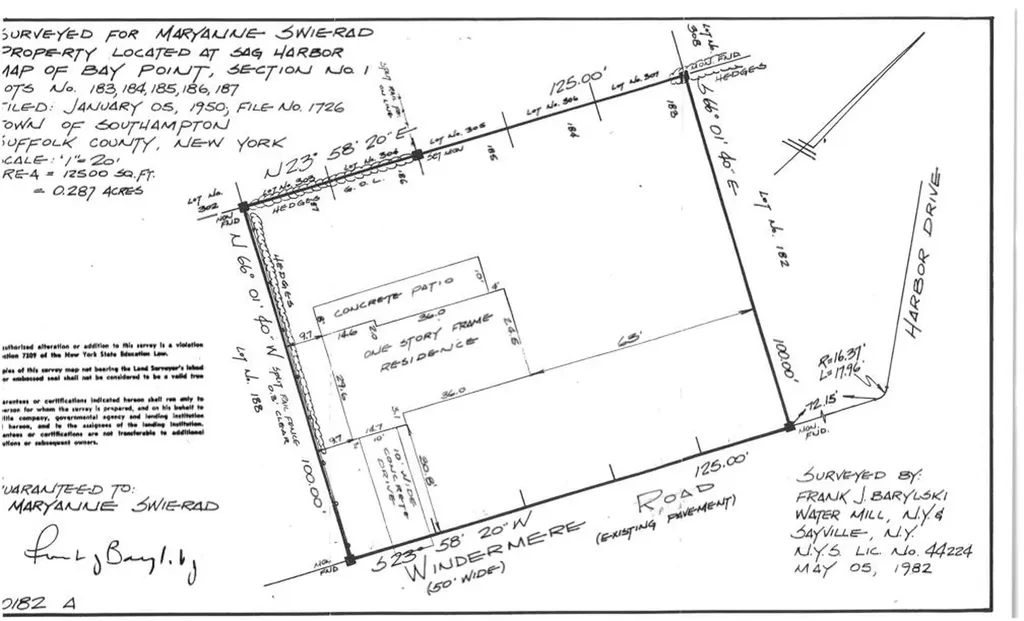 SURVEYED FOR MARYANNE SWIERAD
PROPERTY LOCATED AT SAG HARBOR
MAP OF BAY POINT, SECTION NO. 1
OTS NO. 183,184,185,186,187
FILED: JANUARY 05, 1950; FILE NO. 1726
OWN OF SOUTHAMPTON
SUFFOLK COUNTY, NEW YORK
CALE: 1"=20'
REA = 12500 SQ.FT.
= 0.287 ACRES
LOT NO. 302
MON FND
N 23° 58' 20" E
125.00'
LOT NO. 303
LOT NO. 304
LOT NO. 305
LOT NO. 306
LOT NO. 307
LOT NO. 308
HEDGES
187
186
185
184
183
SET MON
MON FND
HEDGES
S 66° 01' 40" E
LOT NO. 182
100.00'
HARBOR DRIVE
R=16.37'
L=17.96'
72.15'
MON. FND.
N 66° 01' 40" W
HEDGES
SPLIT RAIL FENCE
0.3' CLEAR
LOT NO. 188
100.00'
CONCRETE PATIO
10'
4'
8'
9.7
14.6
2.0
36.0
24.6
ONE STORY FRAME
RESIDENCE
29.6
36.0
63'
3.1
9.7
14.7
10'
10' WIDE
CONCRETE
DRIVE
30.8'
MON FND
S 23° 58' 20" W
125.00'
WINDERMERE ROAD
(50' WIDE)
(EXISTING PAVEMENT)
uthorised alteration or addition to this survey is a violation
ction 7209 of the New York State Education Law.
pies of this survey map not bearing the Land Surveyor's inked
or embossed seal shall not be considered to be a valid true
arantees or certifications indicated hereon shall run only to
erson for whom the survey is prepared, and on his behalf to
itle company, governmental agency and lending institution
hereon, and to the assignees of the lending institution.
antees or certifications are not transferable to additional
utions or subsequent owners.
UARANTEED TO:
MARYANNE SWIERAD
SURVEYED BY:
FRANK J. BARYLSKI
WATER MILL, N.Y. &
SAYVILLE, N.Y.
N.Y.S. LIC. NO. 44224
MAY 05, 1982
0182 A